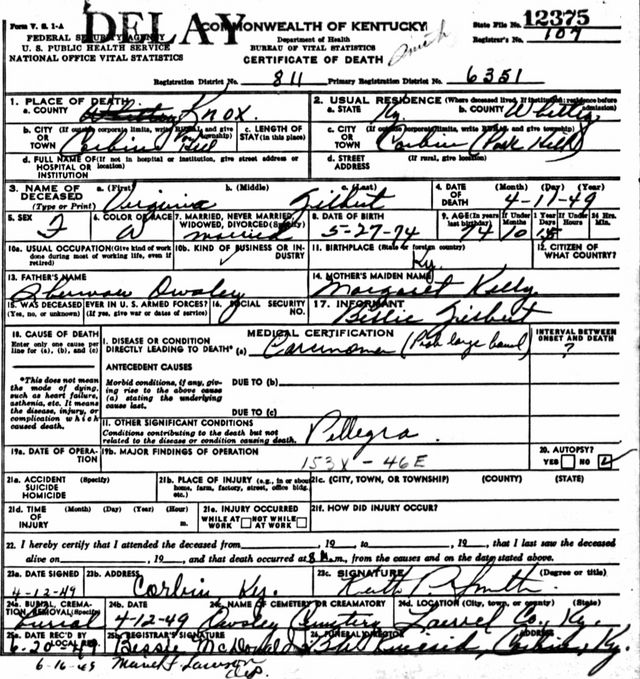 Form V. S. 1-A
DELAY
COMMONWEALTH OF KENTUCKY
State File No. 12375
FEDERAL SECURITY AGENCY
Department of Health
Registrar's No. 107
U. S. PUBLIC HEALTH SERVICE
BUREAU OF VITAL STATISTICS
Smith
NATIONAL OFFICE VITAL STATISTICS
CERTIFICATE OF DEATH
Registration District No. 811 Primary Registration District No. 6351
1. PLACE OF DEATH
a. COUNTY Knox.
2. USUAL RESIDENCE (Where deceased lived. If institution: residence before admission)
a. STATE Ky. b. COUNTY Whitley
b. CITY (If outside corporate limits, write RURAL and give township) OR TOWN Corbin
c. LENGTH OF STAY (in this place)
c. CITY (If outside corporate limits, write RURAL and give township) OR TOWN Corbin
d. FULL NAME OF (If not in hospital or institution, give street address or location) HOSPITAL OR INSTITUTION
d. STREET ADDRESS (If rural, give location)
3. NAME OF DECEASED (Type or Print)
a. (First) Virginia b. (Middle) c. (Last) Gilbert
4. DATE OF DEATH (Month) (Day) (Year) 4-11-49
5. SEX F
6. COLOR OR RACE W
7. MARRIED, NEVER MARRIED, WIDOWED, DIVORCED (Specify) married
8. DATE OF BIRTH 5-27-74
9. AGE (In years last birthday) 74 If Under 1 Year Months 10 Days If Under 24 Hrs. Hours Min.
10a. USUAL OCCUPATION (Give kind of work done during most of working life, even if retired)
10b. KIND OF BUSINESS OR INDUSTRY
11. BIRTHPLACE (State or foreign country) Ky.
12. CITIZEN OF WHAT COUNTRY?
13. FATHER'S NAME Owsley
14. MOTHER'S MAIDEN NAME Margaret Kelly
15. WAS DECEASED EVER IN U. S. ARMED FORCES? (Yes, no, or unknown) (If yes, give war or dates of service)
16. SOCIAL SECURITY NO.
17. INFORMANT Gilbert
18. CAUSE OF DEATH
Enter only one cause per line for (a), (b), and (c)
MEDICAL CERTIFICATION
INTERVAL BETWEEN ONSET AND DEATH
I. DISEASE OR CONDITION DIRECTLY LEADING TO DEATH* (a) Carcinoma ( large bowel) ?
ANTECEDENT CAUSES
*This does not mean the mode of dying, such as heart failure, asthenia, etc. It means the disease, injury, or complication which caused death.
Morbid conditions, if any, giving rise to the above cause (a) stating the underlying cause last.
DUE TO (b)
DUE TO (c)
II. OTHER SIGNIFICANT CONDITIONS
Conditions contributing to the death but not related to the disease or condition causing death. Pellegra.
19a. DATE OF OPERATION
19b. MAJOR FINDINGS OF OPERATION
153X - 46E
20. AUTOPSY? YES NO
21a. ACCIDENT SUICIDE HOMICIDE (Specify)
21b. PLACE OF INJURY (e.g., in or about home, farm, factory, street, office bldg. etc.)
21c. (CITY, TOWN, OR TOWNSHIP) (COUNTY) (STATE)
21d. TIME OF INJURY (Month) (Day) (Year) (Hour) m.
21e. INJURY OCCURRED WHILE AT WORK NOT WHILE AT WORK
21f. HOW DID INJURY OCCUR?
22. I hereby certify that I attended the deceased from , 19 to , 19 , that I last saw the deceased
alive on , 19 , and that death occurred at m., from the causes and on the date stated above.
23a. DATE SIGNED 4-12-49
23b. ADDRESS Corbin Ky.
23c. SIGNATURE (Degree or title) P. Smith
24a. BURIAL, CREMATION, REMOVAL (Specify) Burial
24b. DATE 4-12-49
24c. NAME OF CEMETERY OR CREAMATORY Owsley Cemetery
24d. LOCATION (City, town, or county) (State) Laurel Co., Ky.
25a. DATE REC'D BY LOCAL REG. 6-20
25b. REGISTRAR'S SIGNATURE Bessie McDonald
26. FUNERAL DIRECTOR ADDRESS Corbin, Ky.
6-16-49 Lawson